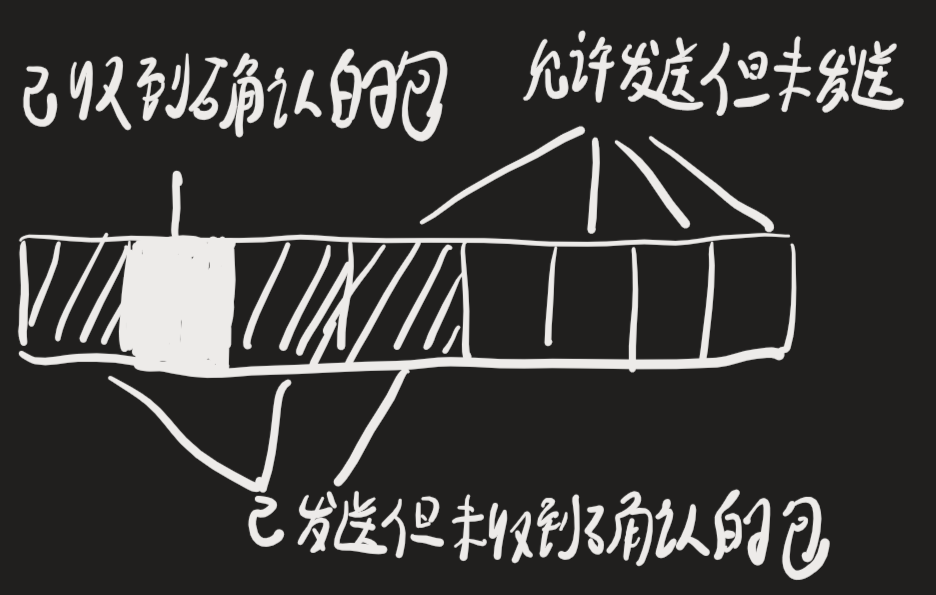 已收到确认的包
允许发送但未发送
已发送但未收到确认的包